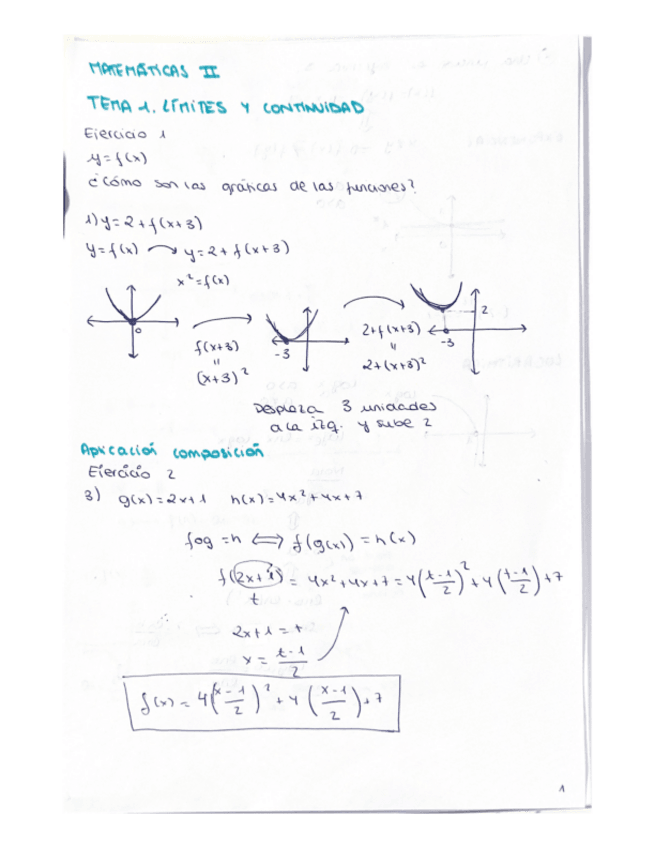 MATEMÁTICAS II
TEMA 1. LÍMITES Y CONTINUIDAD
Ejercicio 1
y=f(x)
¿Cómo son las gráficas de las funciones?
1) y=2+f(x+3)
y=f(x) → y=2+f(x+3)
x²=f(x)
0
f(x+3)
"
(x+3)²
-3
2+f(x+3)
"
2+(x+3)²
2
-3
Desplaza 3 unidades
a la izq. y sube 2
Aplicación composición
Ejercicio 2
3) g(x)=2x+1 h(x)=4x²+4x+7
fog=h ⟺ f(g(x))=h(x)
f(2x+1)=4x²+4x+7=4((t-1)/2)²+4((t-1)/2)+7
t
2x+1=t
x=(t-1)/2
f(x)=4((x-1)/2)²+4((x-1)/2)+7
1